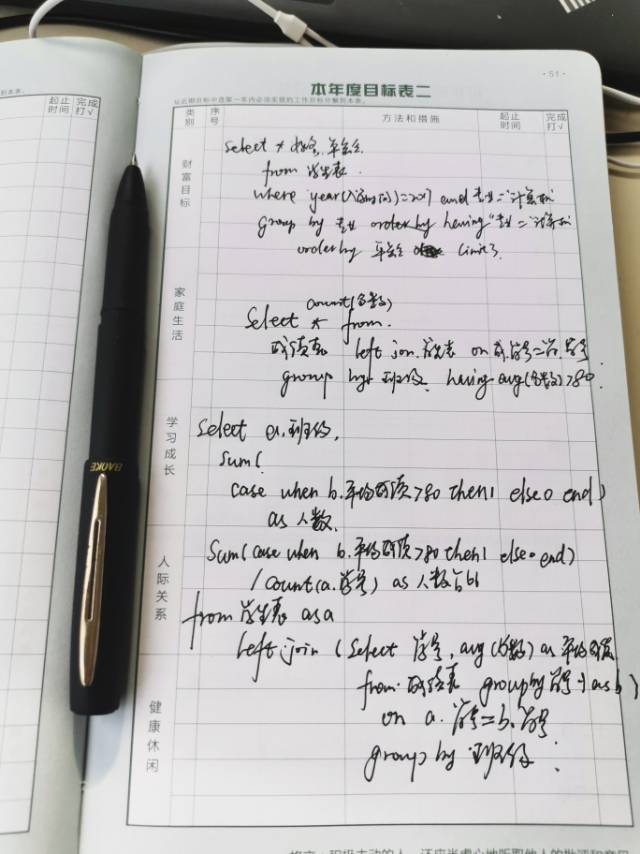 · 51 ·
本年度目标表二
类别
序号
方法和措施
起止时间
完成打√
起止时间
完成打√
财富目标
select * 姓名, 年龄
from 学生表
where year(入学时间)=2017 and 专业="计算机"
group by 专业 order by having "专业="计算机
order by 年龄 limit 3
家庭生活
count(分数)
select * from.
成绩表 left join. 学生表 on 成.学号=学.学号
group by 班级, having avg(分数)>80.
学习成长
select a.班级,
sum(
case when b.平均成绩>80 then 1 else 0 end)
as 人数,
人际关系
sum(case when b.平均成绩>80 then 1 else 0 end)
/count(a.学号) as 人数占比
from 学生表 as a
left join (select 学号, avg(分数) as 平均成绩
from 成绩表 group by 学号) as b)
on a.学号=b.学号
健康休闲
group by 班级;
BAOKE